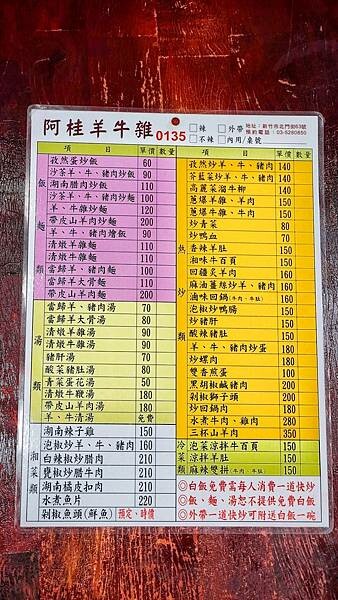 阿桂羊牛雜 0135 □辣 □外帶 地址:新竹市北門街63號
□不辣 □內用/桌號 預約電話:03-5280850
項 目 單價 數量
飯麵類
孜然蛋炒飯 60
沙茶羊、牛、豬肉炒飯 90
湖南腊肉炒飯 110
沙茶羊、牛、豬肉炒麵 100
羊、牛雜炒麵 120
帶皮山羊肉炒麵 200
羊、牛、豬肉燴飯 100
清燉羊雜麵 110
清燉牛雜麵 110
當歸羊、豬肉麵 100
當歸羊大骨麵 100
帶皮山羊肉麵 200
湯類
當歸羊、豬肉湯 70
當歸羊大骨湯 80
清燉羊雜湯 90
豬肝湯 70
酸菜豬肚湯 80
青菜蛋花湯 50
清燉牛雜湯 180
帶皮山羊肉湯 180
羊、牛清湯 免費
湘菜類
湖南辣子雞 150
泡椒炒羊、牛、豬肉 160
白辣椒炒腊肉 210
甕椒炒腊牛肉 210
湖南橘皮扣肉 210
水煮魚片 220
剁椒魚頭(鮮魚) 預定、時價
項 目 單價 數量
熱炒類
孜然炒羊、牛、豬肉 140
芥藍菜炒羊、牛、豬肉 140
高麗菜溜牛柳 140
蔥爆羊雜、羊肉 150
蔥爆牛雜、牛肉 150
炒青菜 80
炒鴨血 70
香辣羊肚 150
湘味牛百頁 150
回疆炙羊肉 160
麻油薑絲炒羊、豬肉 160
滷味回鍋(牛肉、牛肚) 160
泡椒炒鴨腸 150
炒豬肝 150
酸辣豬肚 150
羊、牛、豬肉炒蛋 180
炒螺肉 180
雙香煎蛋 100
黑胡椒鹹豬肉 200
剁椒獅子頭 200
炒回鍋肉 200
水煮牛肉、雞肉 280
三杯山羊肉 300
冷菜類
泡菜涼拌牛百頁 150
涼拌羊肚 150
麻辣雙拼(牛肉、牛肚) 150
◎白飯免費需每人消費一道快炒
◎飯、麵、湯恕不提供免費白飯
◎外帶一道快炒可附送白飯一碗